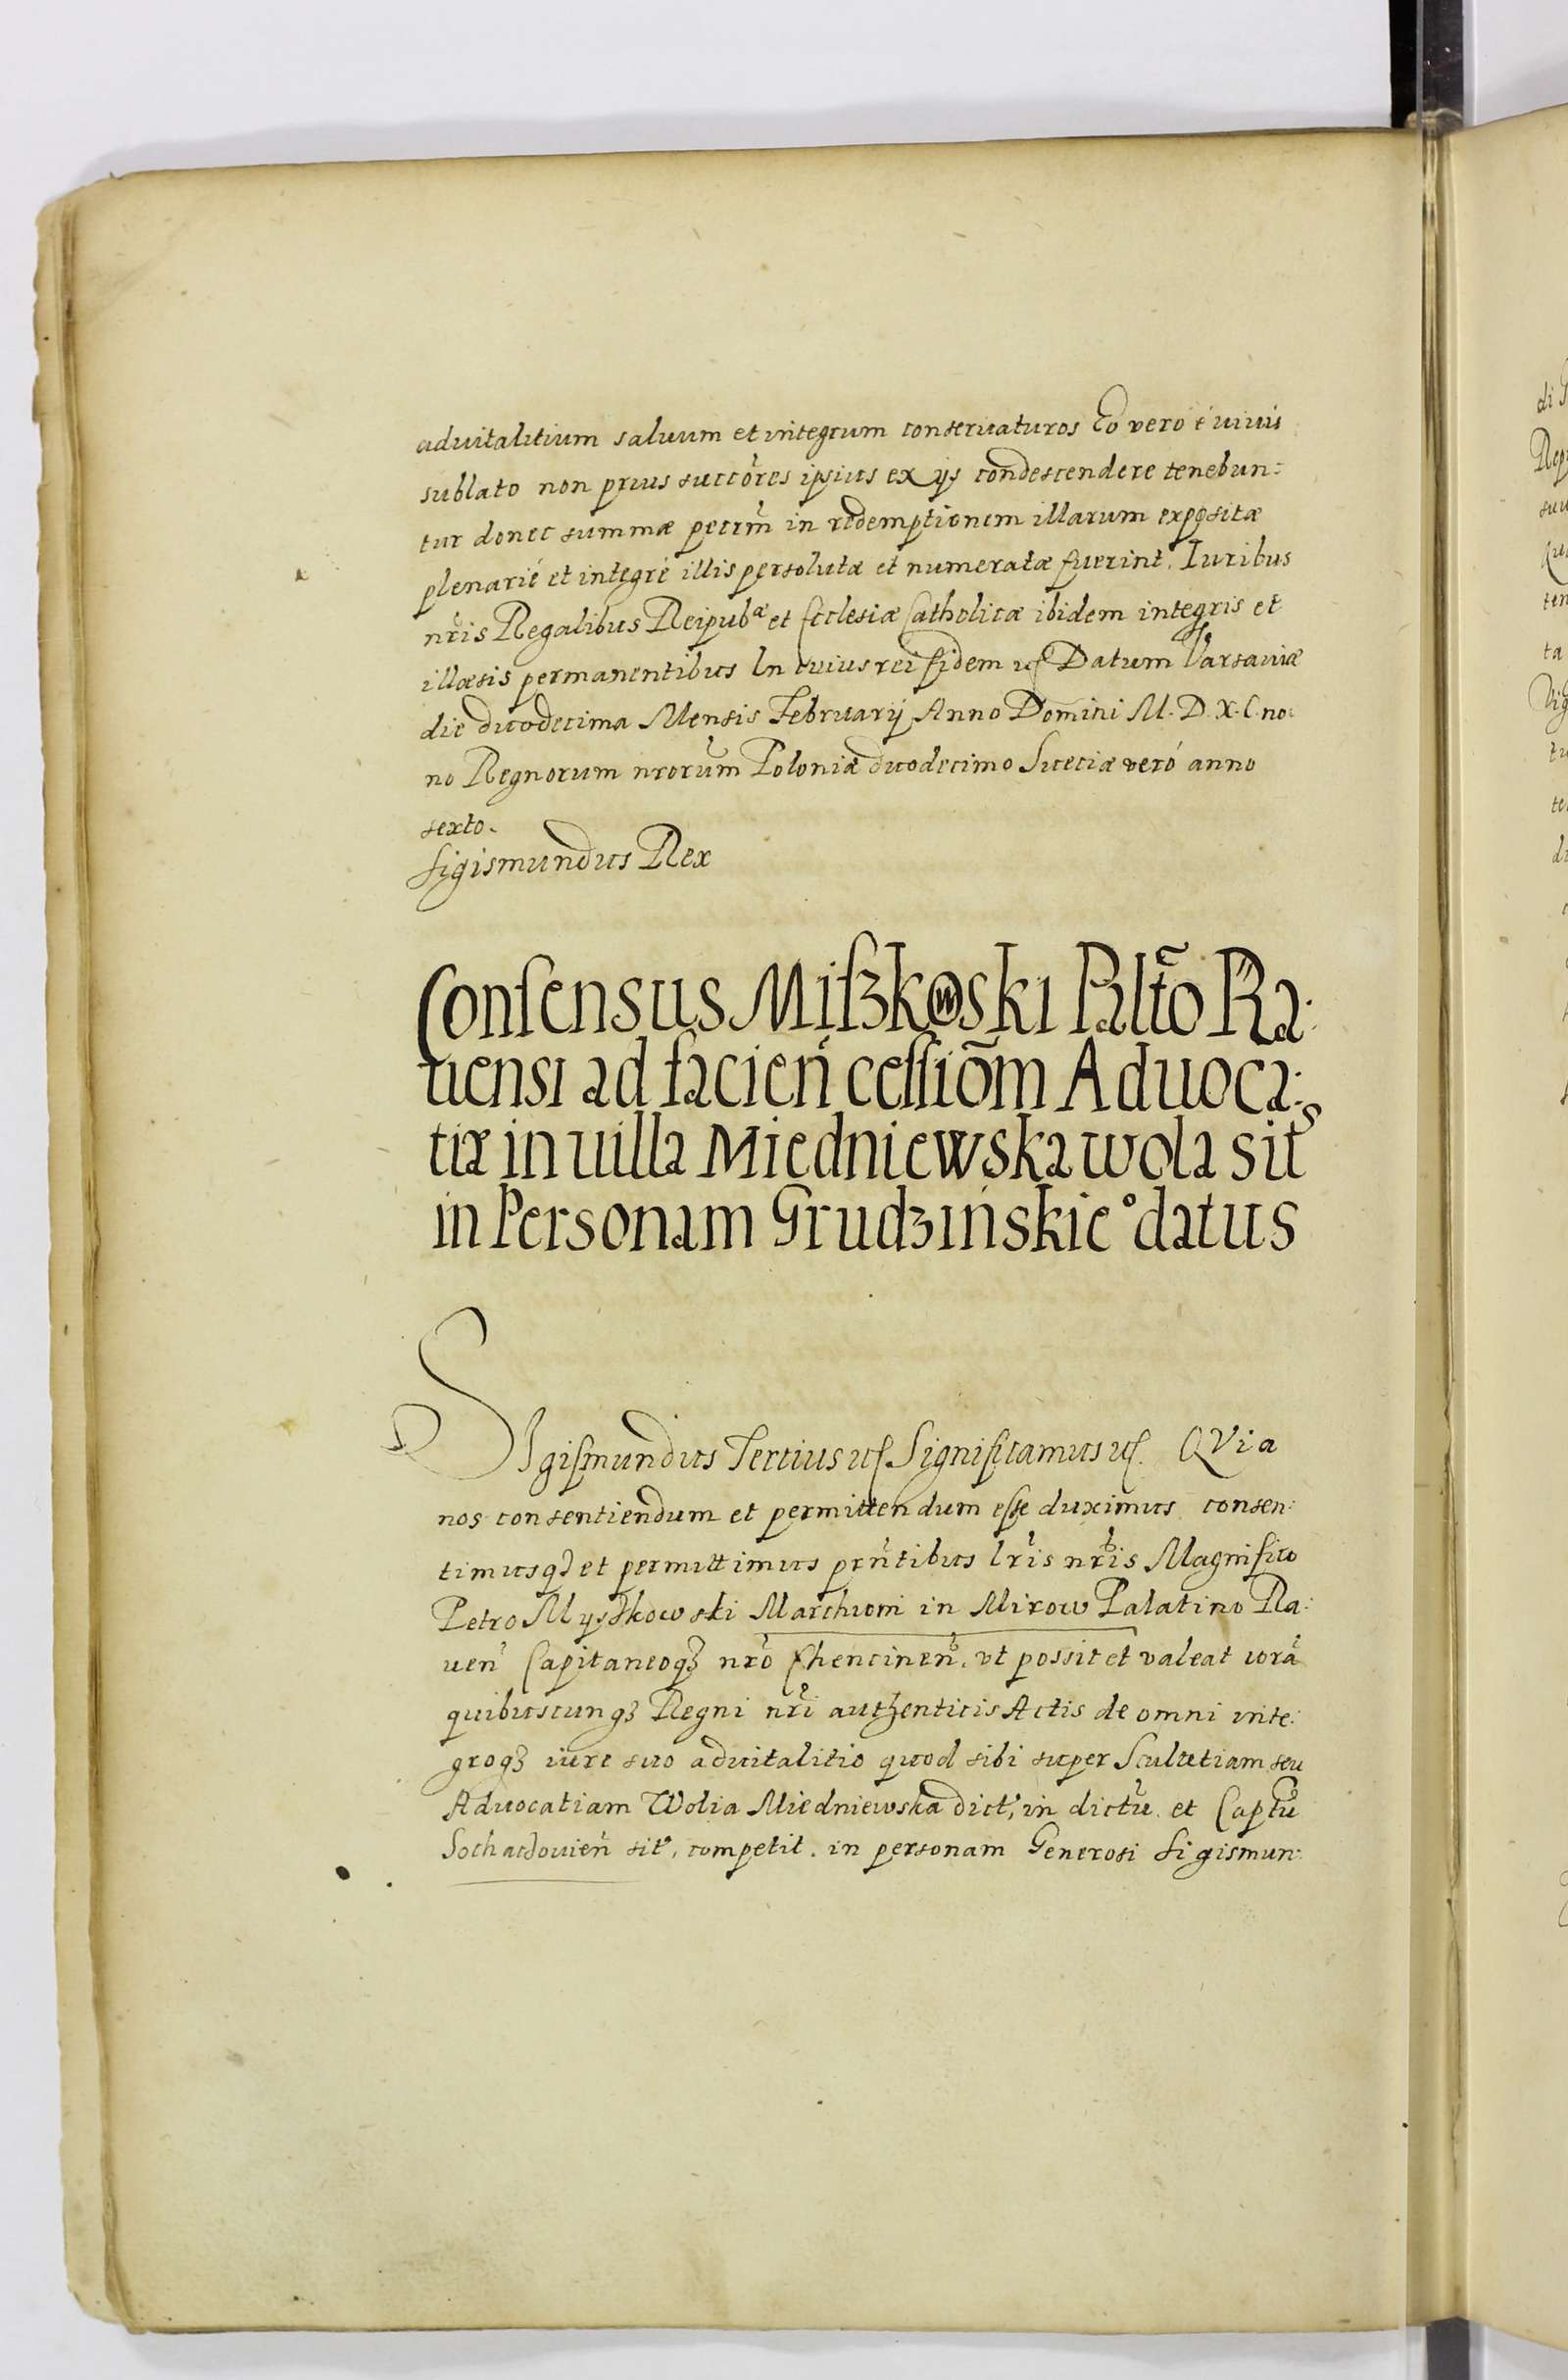 aduitalitium saluum et integrum conseruaturos Eo vero é viuis
sublato non prius succores ipsius ex ijs condescendere tenebun:
tur donec summæ pecrm in redemptionem illarum expositæ
plenarié et integré illis persolutæ et numeratæ fuerint. Iuribus
nris Regalibus Reipubæ et Ecclesiæ Catholicæ ibidem integris et
illæsis permanentibus In cuius rei fidem Datum Varsauiæ
die duodecima Mensis February Anno Domini M. D. X. C. no:
no Regnorum nrorum Poloniæ duodecimo Sueciæ veró anno
sexto.
Sigismundus Rex
Consensus Miszkowski Palto Ra:
uensi ad facien cessiom Aduoca:
tiæ in uilla Miedniewska wola sit
in Personam Grudzinskie° datus
SIgismundus Tertius Significamus QVia
nos consentiendum et permittendum esse duximus consen:
timusq3 et permittimus prntibus lris nris Magnifico
Petro Myszkowski Marchioni in Mirow Palatino Ra:
uen Capitaneoq3 nro Chencinen. vt possit et valeat cora
quibuscunq3 Regni nri authenticis Actis de omni inte:
groq3 iure suo aduitalitio quod sibi super Scultetiam seu
Aduocatiam Wolia Miedniewska dict, in dictu et Captu
Sochaczouien sit, competit. in personam Generosi Sigismun:
di